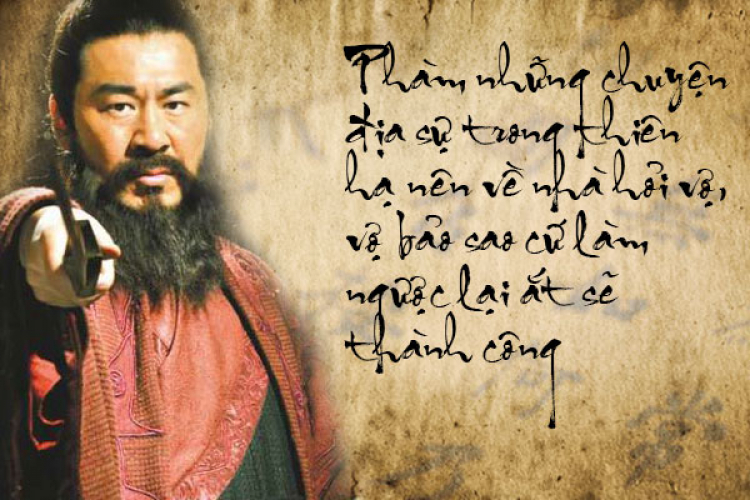 Phàm những chuyện
địa sự trong thiên
hạ nên về nhà hỏi vợ,
vợ bảo sao cứ làm
ngược lại ắt sẽ
thành công